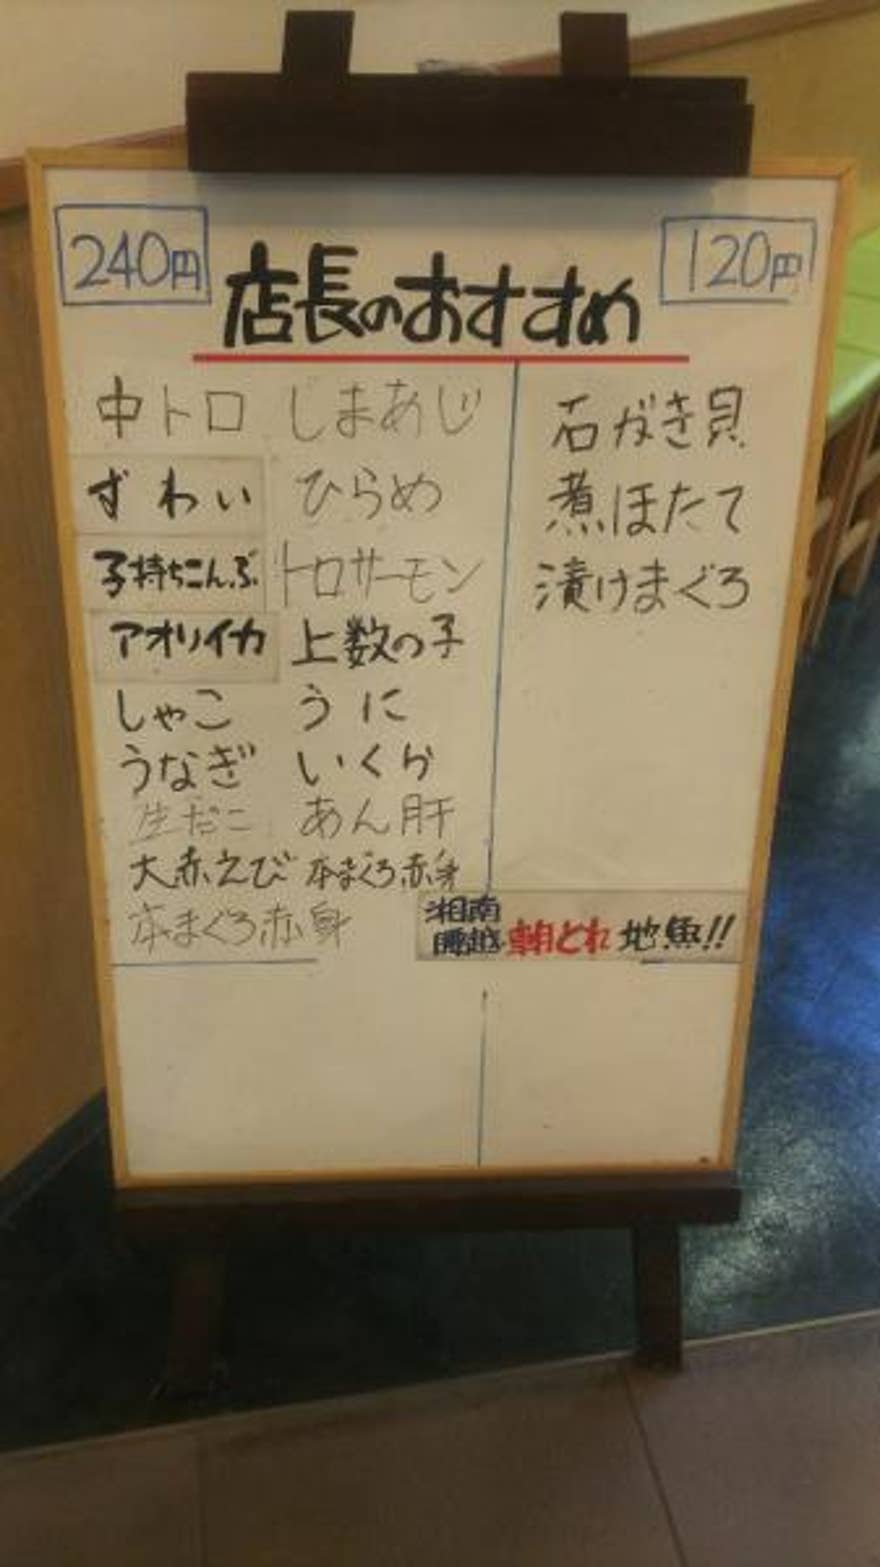 240円
店長のおすすめ
120円
中トロ しまあじ
ずわい ひらめ
子持ちこんぶ トロサーモン
アオリイカ 上数の子
しゃこ うに
うなぎ いくら
生だこ あん肝
大赤えび 本まぐろ赤身
本まぐろ赤身
石がき貝
煮ほたて
漬けまぐろ
湘南
腰越 朝どれ 地魚!!